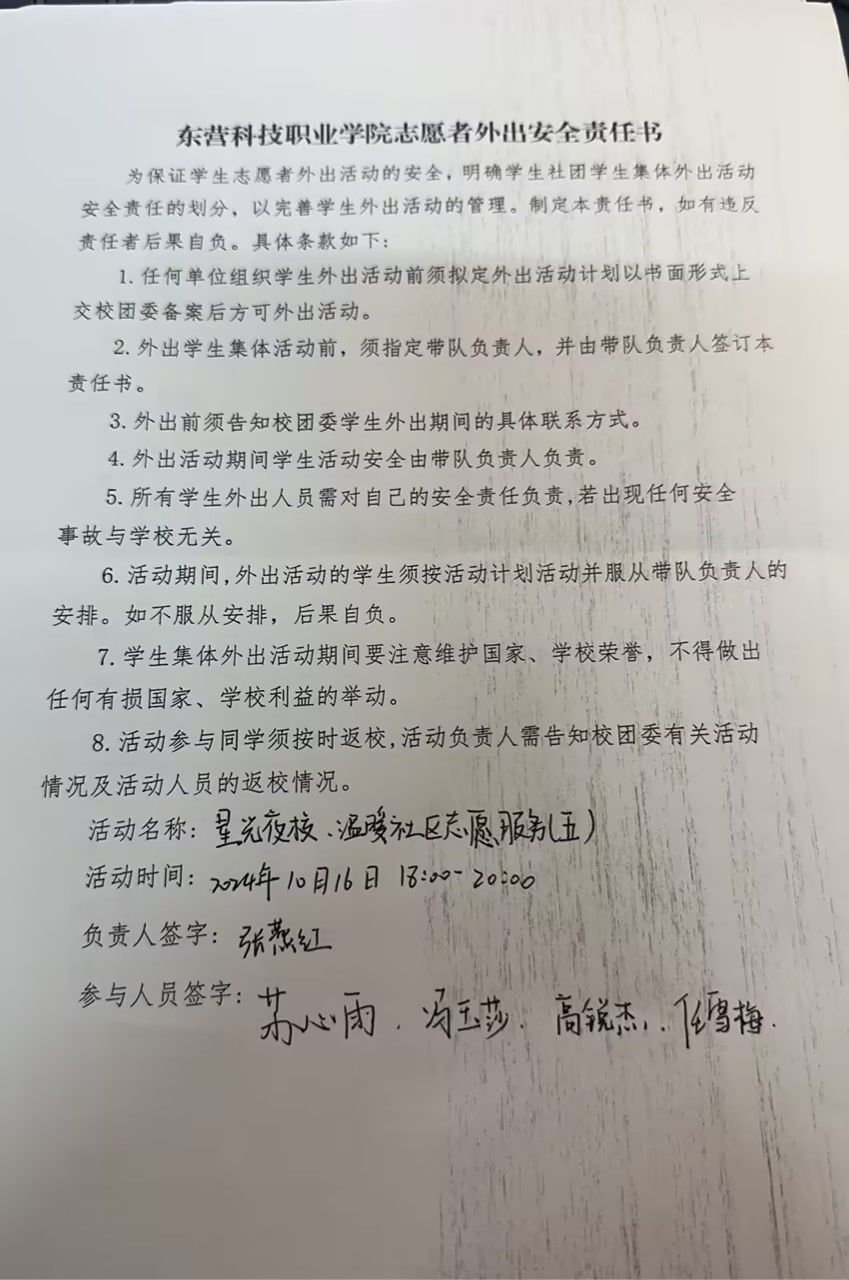 东营科技职业学院志愿者外出安全责任书
为保证学生志愿者外出活动的安全，明确学生社团学生集体外出活动
安全责任的划分，以完善学生外出活动的管理。制定本责任书，如有违反
责任者后果自负。具体条款如下：
1.任何单位组织学生外出活动前须拟定外出活动计划以书面形式上
交校团委备案后方可外出活动。
2.外出学生集体活动前，须指定带队负责人，并由带队负责人签订本
责任书。
3.外出前须告知校团委学生外出期间的具体联系方式。
4.外出活动期间学生活动安全由带队负责人负责。
5.所有学生外出人员需对自己的安全责任负责,若出现任何安全
事故与学校无关。
6.活动期间,外出活动的学生须按活动计划活动并服从带队负责人的
安排。如不服从安排，后果自负。
7.学生集体外出活动期间要注意维护国家、学校荣誉，不得做出
任何有损国家、学校利益的举动。
8.活动参与同学须按时返校,活动负责人需告知校团委有关活动
情况及活动人员的返校情况。
活动名称：星光夜校、温暖社区志愿服务(五)
活动时间：2024年10月16日 18:00-20:00
负责人签字：张燕红
参与人员签字：苏心雨、冯玉莎、高锐杰、任雪梅.